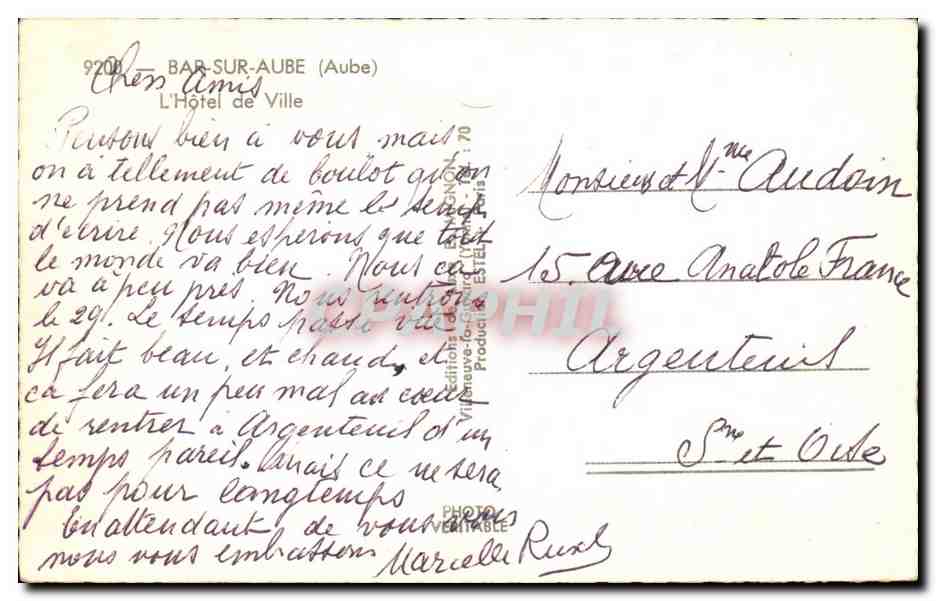 9200 — BAR-SUR-AUBE (Aube)
L'Hôtel de Ville
Chers Amis
Pensons bien à vous mais
on à tellement de boulot qu'on
ne prend pas même le temps
d'écrire. Nous esperons que tout
le monde va bien. Nous ca
va à peu près. Nous rentrons
le 29. Le temps passe vite
Il fait beau, et chaud, et
ca fera un peu mal au coeur
de rentrer à Argenteuil d'un
temps pareil. mais ce ne sera
pas pour longtemps
En attendant de vous
nous vous embrassons
Marcelle
Editions
Villeneuve-la-
Tél. : 70
Production ESTEL Paris
PHOTO
VÉRITABLE
Monsieur et Mme Audoin
15. Avre Anatole France
Argenteuil
Sne et Oise
CPAPHIL